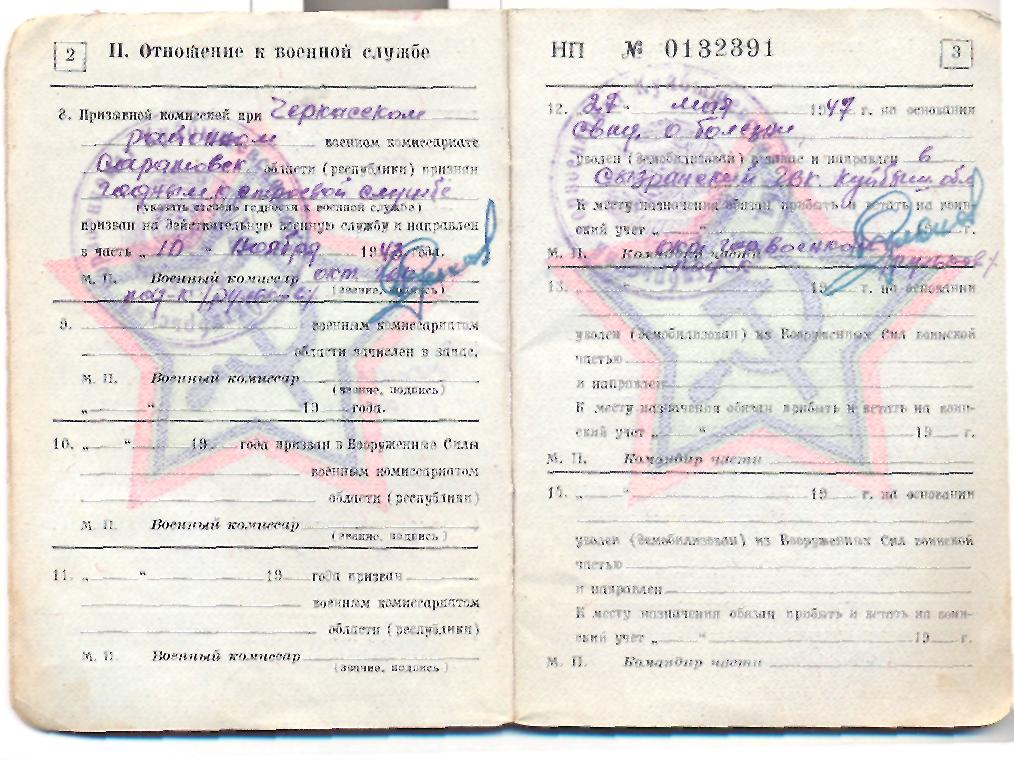 2 II. Отношение к военной службе
8. Призывной комиссией при Черкасском
районном военном комиссариате
Саратовск. области (республики) признан
годным к строевой службе
(указать степень годности к военной службе)
призван на действительную военную службу и направлен
в часть „10“ Ноября 1943 год.
М. П. Военный комиссар окт.
(звание, подпись)
под-к
9. военным комиссариатом
области зачислен в запас.
М. П. Военный комиссар
(звание, подпись)
„ “ 19 года.
10. „ “ 19 года призван в Вооруженные Силы
военным комиссариатом
области (республики)
М. П. Военный комиссар
(звание, подпись)
11. „ “ 19 года призван
военным комиссариатом
области (республики)
М. П. Военный комиссар
(звание, подпись)
НП № 0132391 3
12. „27“ мая 1947 г. на основании
свид. о болезни
уволен (демобилизован) в запас и направлен в
Сызранский ГВК Куйбыш обл
К месту назначения обязан прибыть и встать на воин-
ский учет г.
М. П. Командир части
под-к
13. 19 г. на основании
уволен (демобилизован) из Вооруженных Сил воинской
частью
и направлен
К месту назначения обязан прибыть и встать на воин-
ский учет „ “ 19 г.
М. П. Командир части
15. „ “ 19 г. на основании
уволен (демобилизован) из Вооруженных Сил воинской
частью
и направлен
К месту назначения обязан прибыть и встать на воин-
ский учет „ “ 19 г.
М. П. Командир части